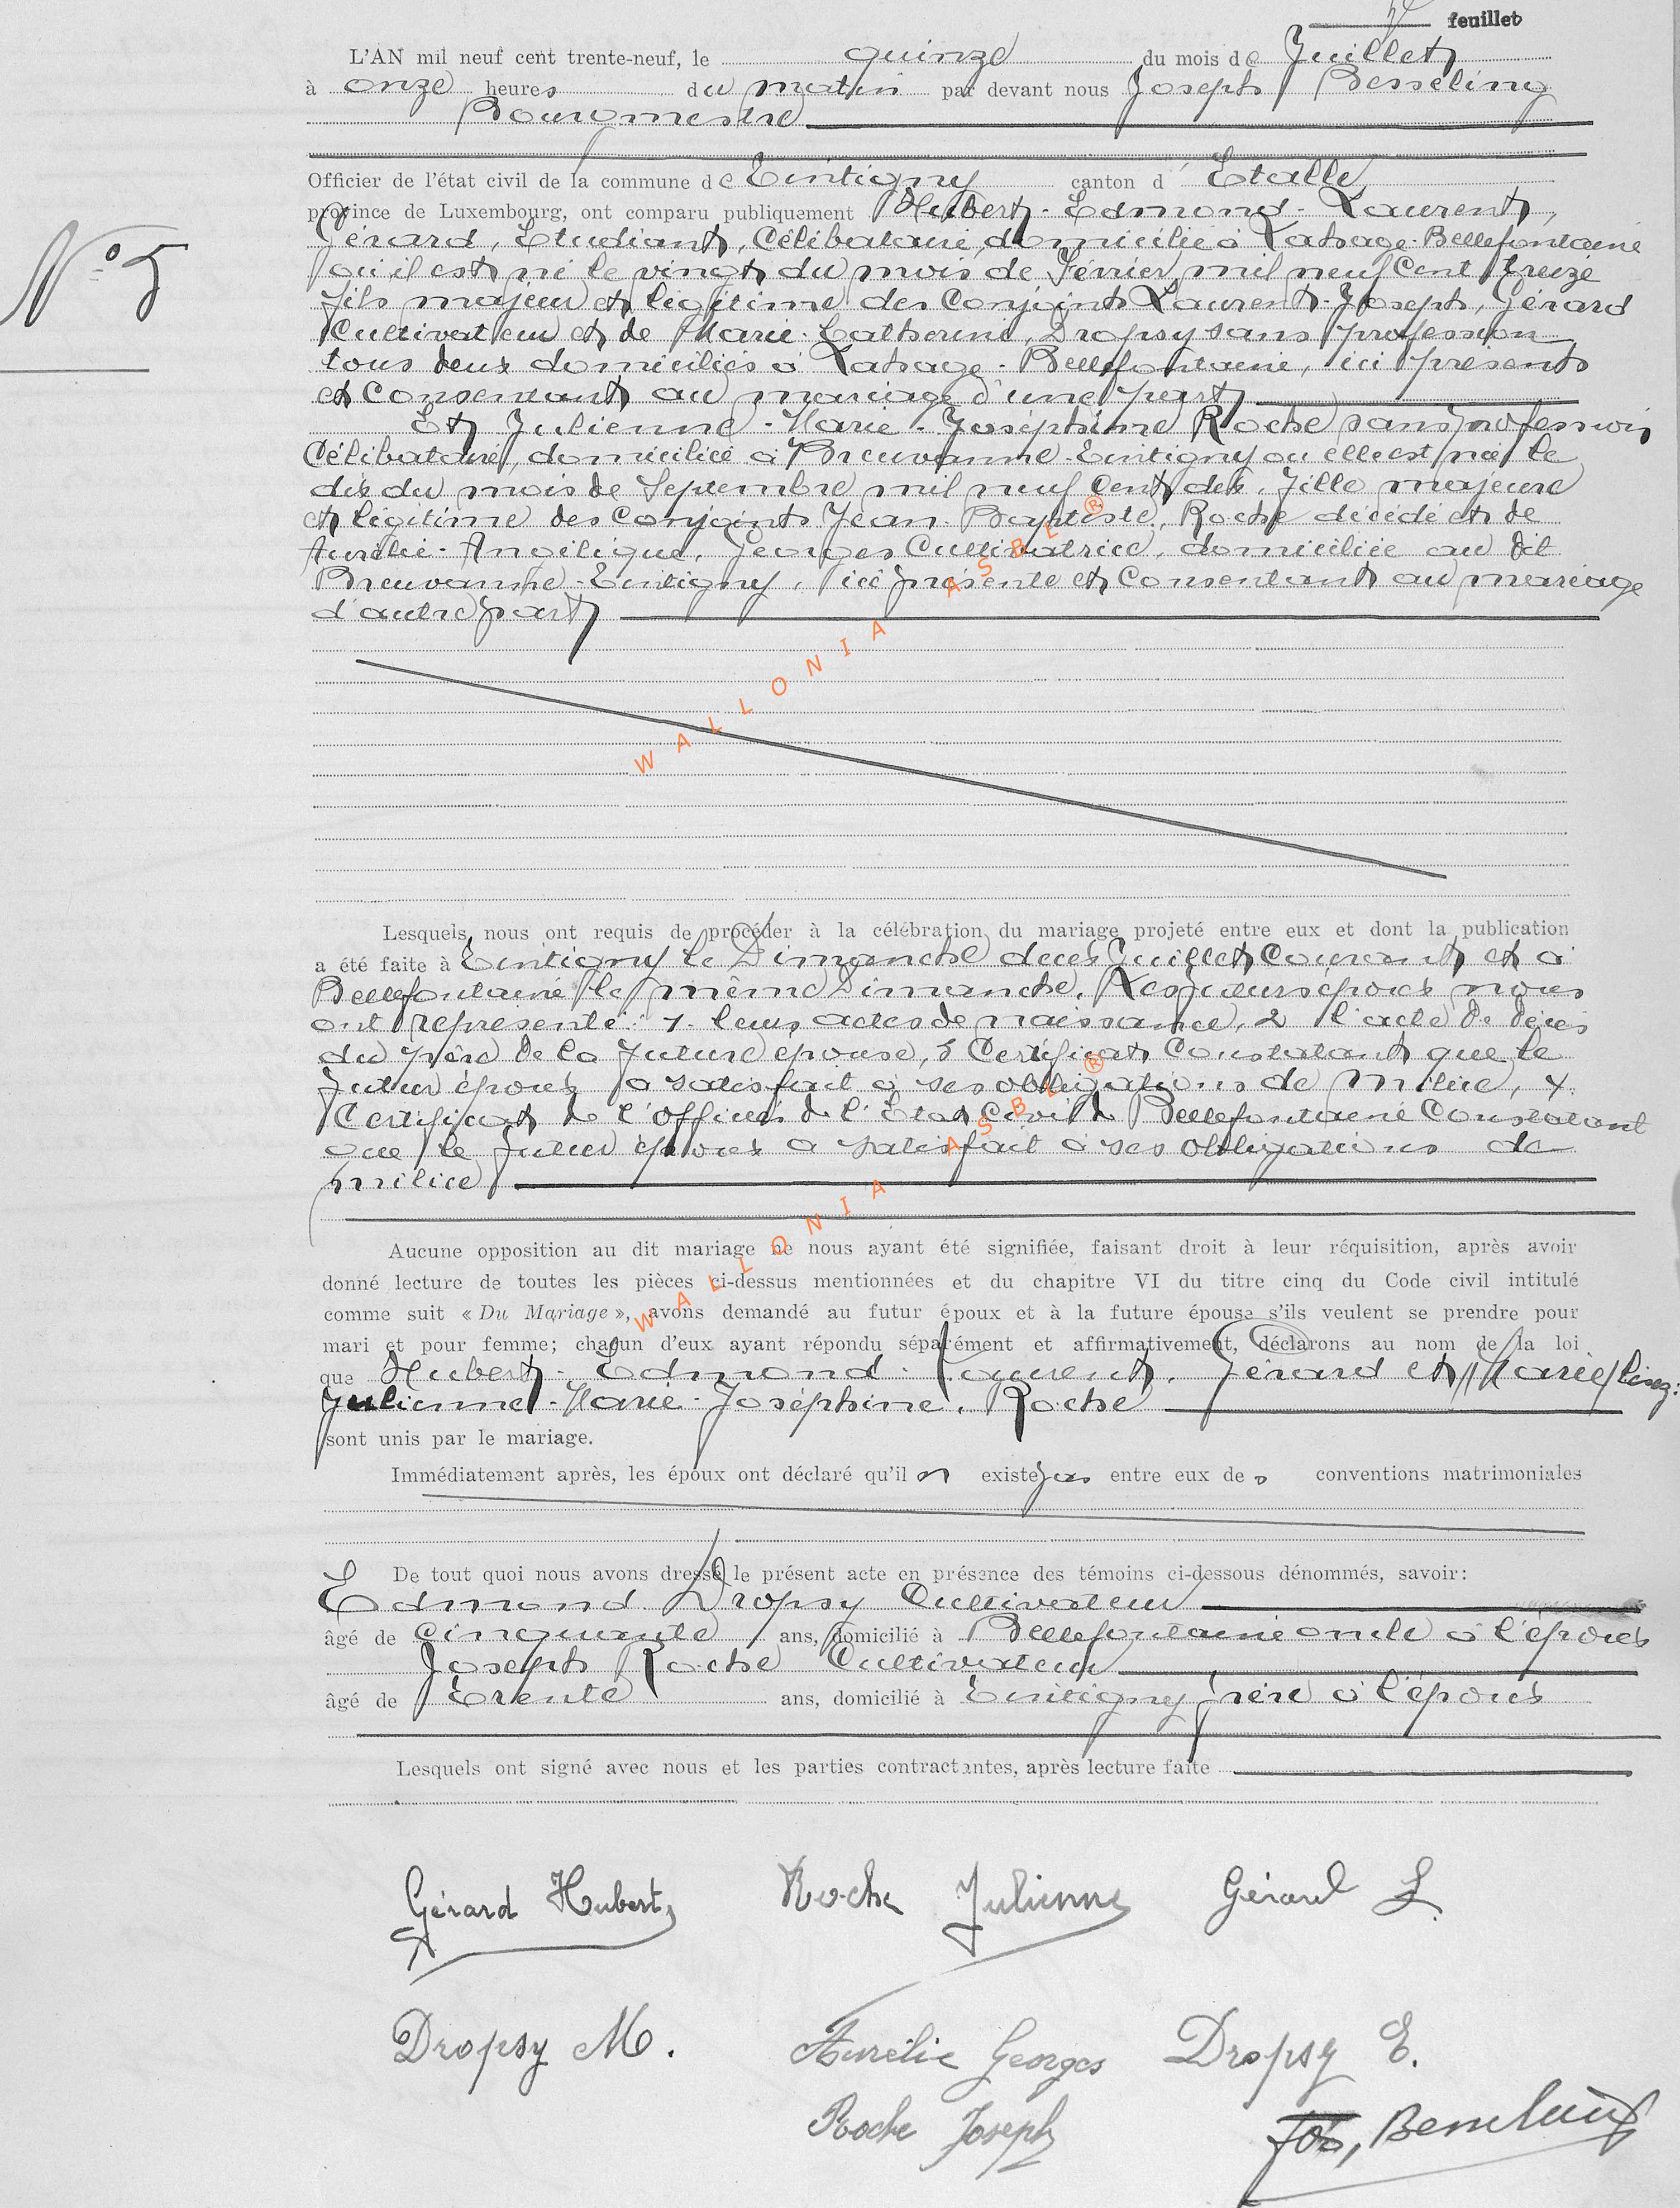 feuillet
L'AN mil neuf cent trente-neuf, le quinze du mois de Juillet
à onze heures du matin par devant nous Joseph Besseling
Bourgmestre
Officier de l'état civil de la commune de Tintigny canton d' Etalle
province de Luxembourg, ont comparu publiquement Hubert-Edmond-Laurent,
Gérard, Etudiant, Célibataire, domicilié à Lahage-Bellefontaine
où il est né le vingt du mois de Février mil neuf Cent treize
fils majeur et légitime des Conjoints Laurent-Joseph, Gérard
Cultivateur et de Marie-Catherine, Dropsy sans profession
tous deux domiciliés à Lahage-Bellefontaine, ici présents
et Consentant au mariage d'une part
Et Julienne-Marie-Joséphine Roche sans profession
Célibataire, domiciliée à Breuvanne-Tintigny où elle est née le
dix du mois de Septembre mil neuf Cent dix, fille majeure
et légitime des Conjoints Jean-Baptiste, Roche décédé et de
Aurélie-Angélique, Georges Cultivatrice, domiciliée au dit
Breuvanne-Tintigny, ici présente et Consentant au mariage
d'autre part
Lesquels nous ont requis de procéder à la célébration du mariage projeté entre eux et dont la publication
a été faite à Tintigny le Dimanche deux Juillet Courant et à
Bellefontaine le même Dimanche. Les futurs époux nous
ont représenté: 1. leurs actes de naissance, 2 l'acte de décès
du père de la future épouse, 3 Certificat Constatant que le
futur époux a satisfait à ses obligations de milice, 4.
Certificat de l'Officier de l'Etat Civil de Bellefontaine Constatant
que le futur époux a satisfait à ses obligations de
milice
Aucune opposition au dit mariage ne nous ayant été signifiée, faisant droit à leur réquisition, après avoir
donné lecture de toutes les pièces ci-dessus mentionnées et du chapitre VI du titre cinq du Code civil intitulé
comme suit « Du Mariage », avons demandé au futur époux et à la future épouse s'ils veulent se prendre pour
mari et pour femme; chacun d'eux ayant répondu séparément et affirmativement, déclarons au nom de la loi
que Hubert-Edmond-Laurent, Gérard et Marie/lisez:
Julienne-Marie-Joséphine, Roche
sont unis par le mariage.
Immédiatement après, les époux ont déclaré qu'il n existe pas entre eux de conventions matrimoniales
De tout quoi nous avons dressé le présent acte en présence des témoins ci-dessous dénommés, savoir:
Edmond Dropsy Cultivateur
âgé de cinquante ans, domicilié à Bellefontaine oncle à l'époux
Joseph Roche Cultivateur
âgé de Trente ans, domicilié à Tintigny frère à l'époux
Lesquels ont signé avec nous et les parties contractantes, après lecture faite
Gérard Hubert Roche Julienne Gérard L.
Dropsy M. Aurélie Georges Dropsy E.
Roche Joseph Jos, Besseling
N° 5
WALLONIA ASBL ®
WALLONIA ASBL ®